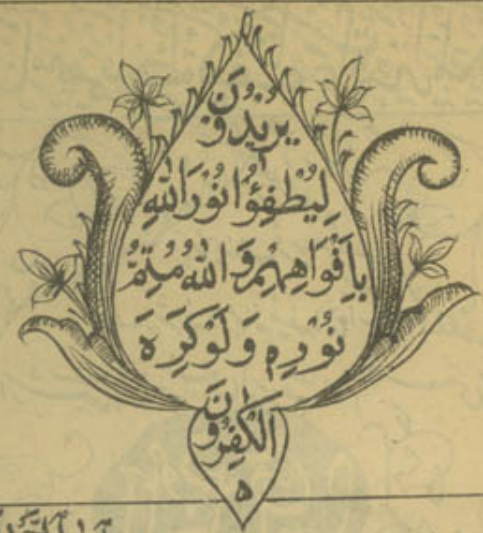 يُرِيْدُوْنَ
لِيُطْفِؤُا نُوْرَ اللّٰهِ
بِاَفْوَاهِهِمْ وَ اللّٰهُ مُتِمُّ
نُوْرِهٖ وَ لَوْ كَرِهَ
الْكٰفِرُوْنَ
۵